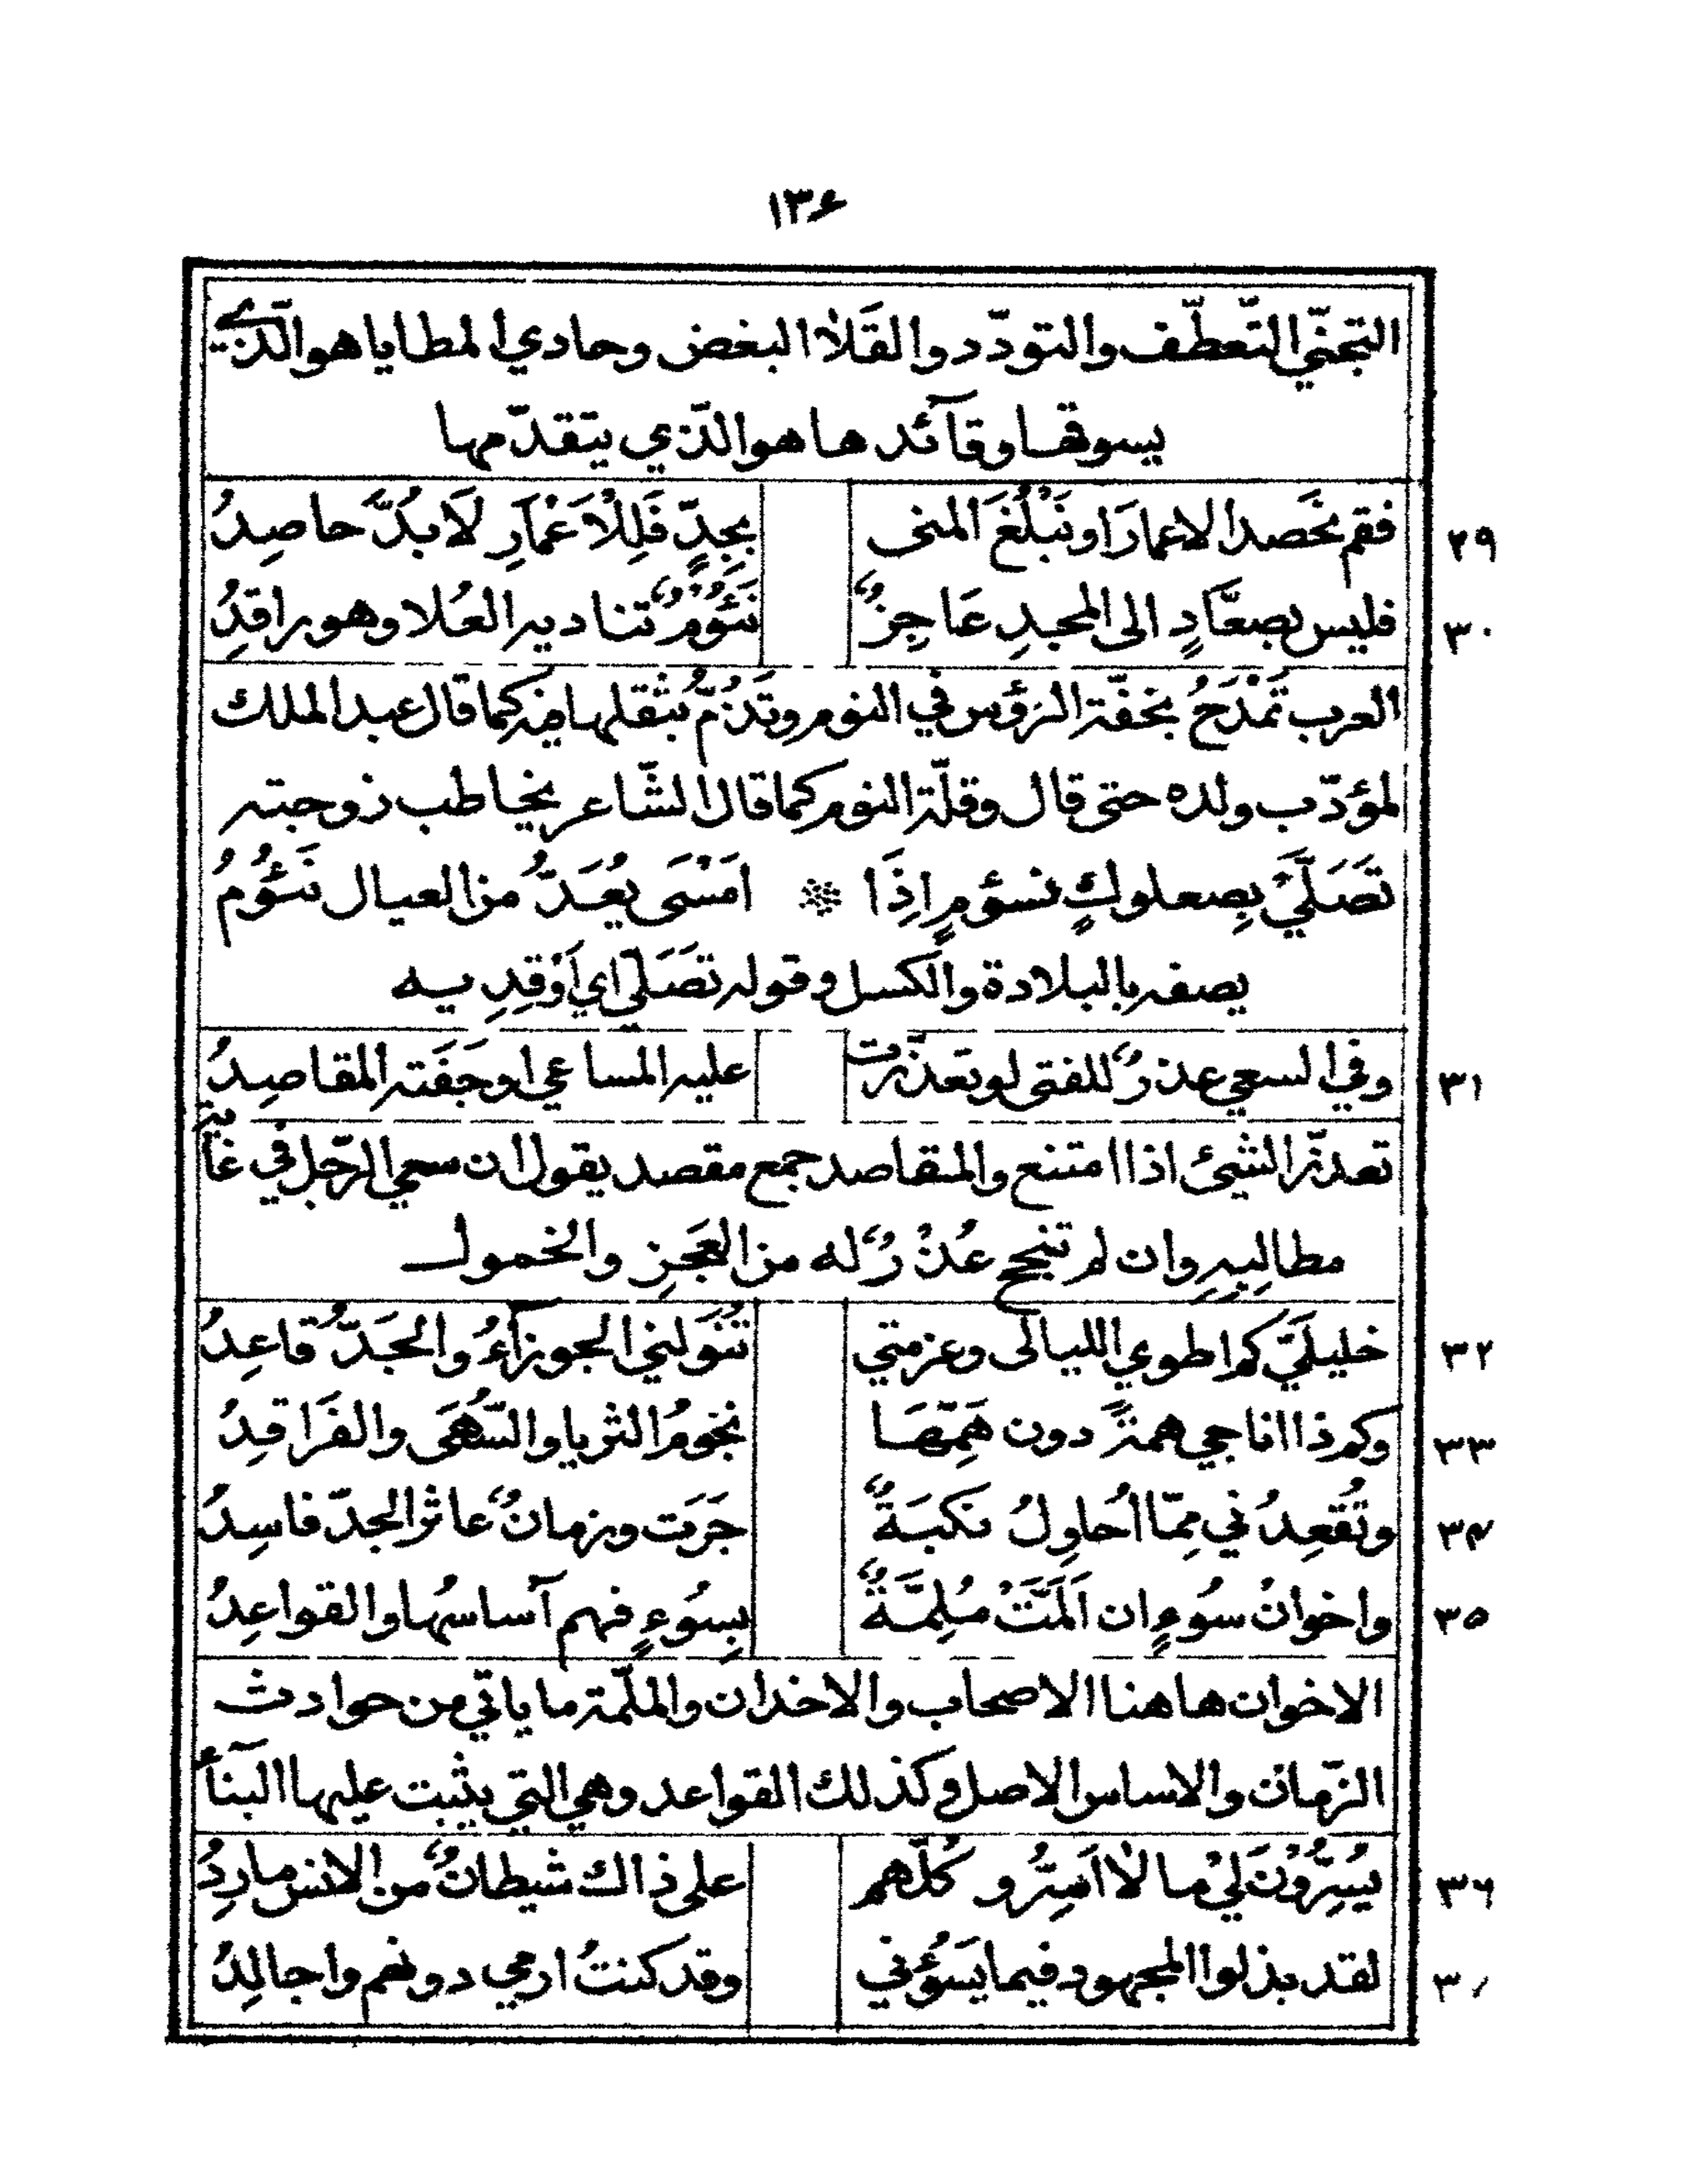 ١٣٤
التجنّي التّعطّف والتودّد والقَلَا البغض وحادي المطايا هو الّذي
يسوقها وقآئدها هو الذّي يتقدّمها
٢٩ فقم نخَصد الاعمارَ او نَبْلُغَ المنى بجِدٍّ فَلِلْاَعْمَارِ لَابدَُّ حاصِدُ
٣٠ فليس بصعَّادٍ الى المجدِ عَاجِزٌ نَئُوْمٌ تناديه العُلا وهو راقدُ
العرب تَمْدَحُ بخفّة الرؤس في النوم وتَذُمّ بثقلها فيه كما قال عبد الملك
لمؤدّب ولده حتى قال وقلّة النوم كما قال الشّاعر يخاطب زوجته
تَصَلَّيَْ بِصعلوكٍ نسؤمٍ اِذَا ۞ امَسْىَ يُعَدُّ من العيال نَئُوُمُ
يصفه بالبلادة والكسل وقوله تصَلَّي اي اَوْقدِ يه
٣١ وفي السعي عذرٌ للفتى لو تعَذّرت عليه المساعي او جَفَته المقاصِدُ
تعذّر الشيئ اذا امتنع والمقاصد جمع مقصد يقول ان سعي الرّجل في غاية
مطالبِهِ وان لم تنجح عُذْرٌ له من العَجزِ والخمول
٣٢ خليلَيَّ كم اطوي الليالى وعزمتي تنَُولني الجوزآءُ والجَدُّ قاعِدُ
٣٣ وكم ذا اناجي همةً دون هَمِّهَا نجومُ الثريا والسُّهَى والفَراقدُ
٣٤ وتُقعِدُني مِمّا اُحاوِلُ نكبَةٌ جَرَت وزمانٌ عاثر الجدّ فاسِدُ
٣٥ واخوانُ سُوءٍ ان اَلَمَّتْ مُلِمَّةٌ بِسُوَءٍ فهم آساسُها والقواعِدُ
الاخوان هاهنا الاصحاب والاخدان والملمّة ما ياتي من حوادث
الزّمان والاساس الاصل وكذلك القواعد وهي التي يثبت عليها البنآء
٣٦ يُسِرُّوْنَ لِيْ ما لا اَسِرُّو كلُّهم على ذاك شيطانٌ من الانس ماردُِ
٣٧ لقد بذلوا المجهود فيما يَسؤُني وقد كنتُ ارمي دونهم واجالِدُ